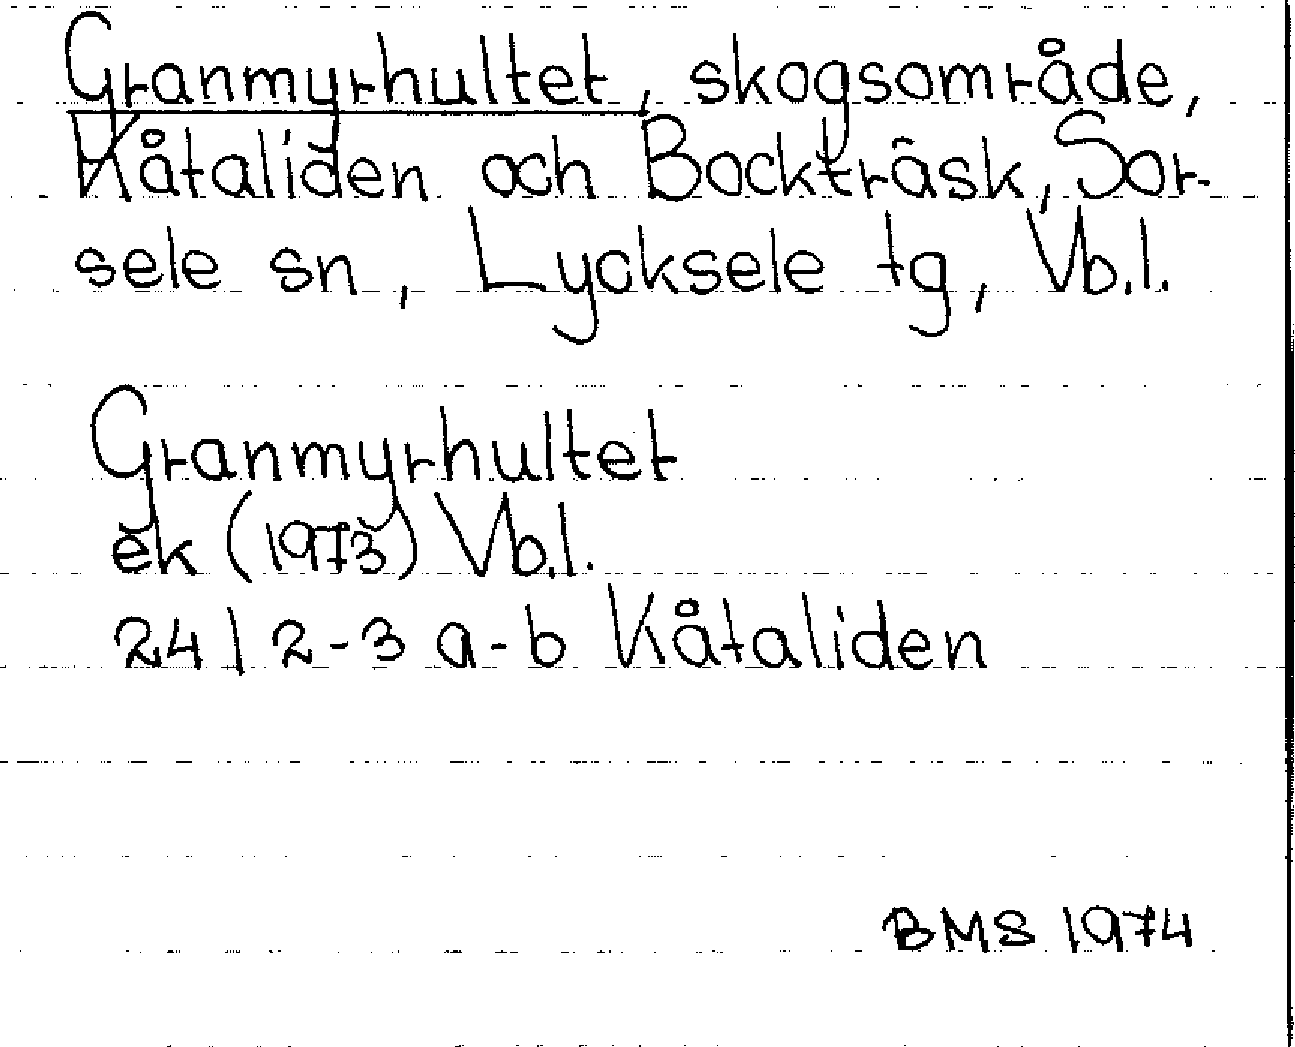 Granmyrhultet, skogsområde,
Kåtaliden och Bockträsk, Sor-
sele sn, Lycksele tg, Vb.l.
Granmyrhultet
ek (1973) Vb.l.
24 I 2-3 a-b Kåtaliden
BMS 1974